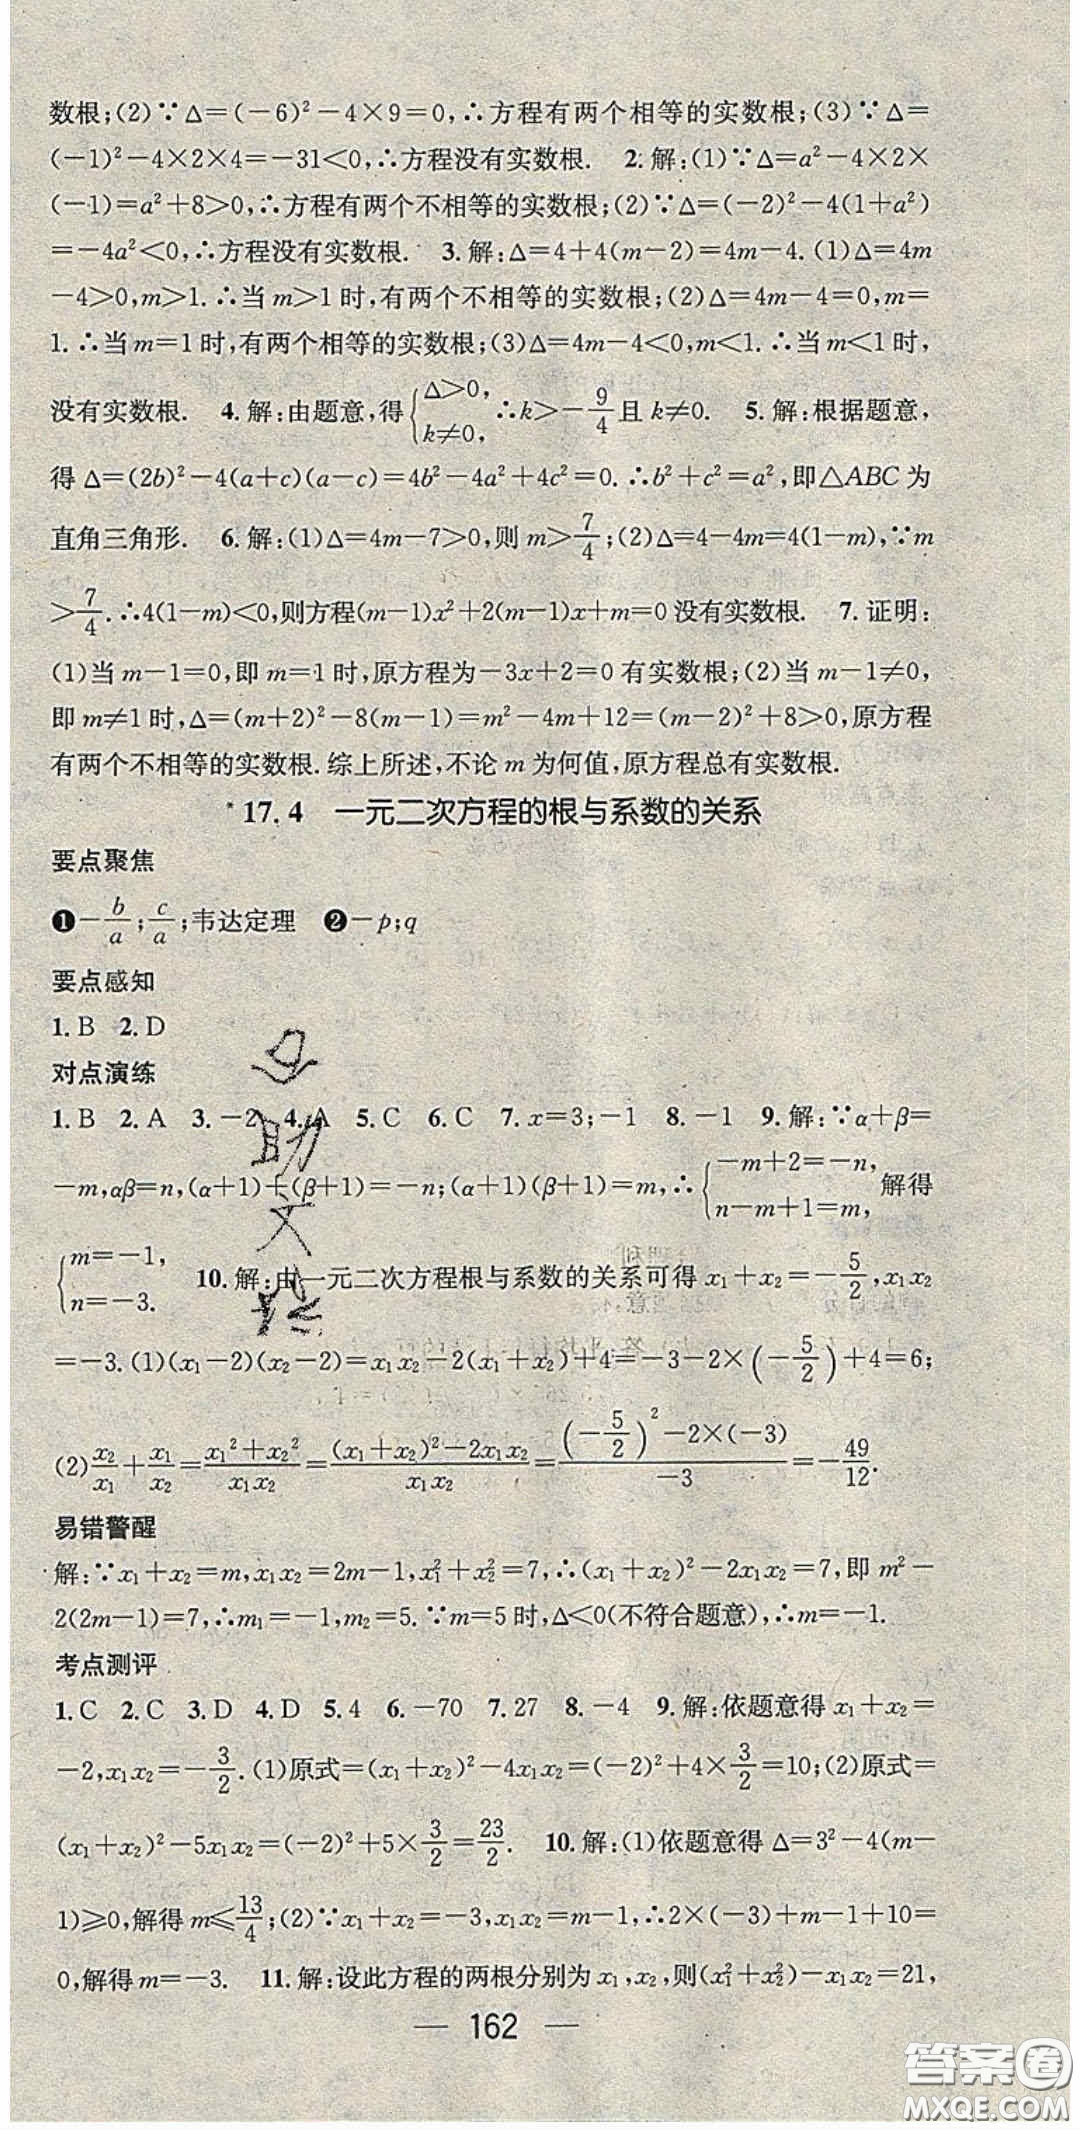 数根;(2)∵Δ=(-6)²-4×9=0,∴方程有两个相等的实数根;(3)∵Δ=
(-1)²-4×2×4=-31<0,∴方程没有实数根. 2.解:(1)∵Δ=a²-4×2×
(-1)=a²+8>0,∴方程有两个不相等的实数根;(2)∵Δ=(-2)²-4(1+a²)
=-4a²<0,∴方程没有实数根. 3.解:Δ=4+4(m-2)=4m-4.(1)Δ=4m
-4>0,m>1.∴当m>1时,有两个不相等的实数根;(2)Δ=4m-4=0,m=
1.∴当m=1时,有两个相等的实数根;(3)Δ=4m-4<0,m<1.∴当m<1时,
没有实数根. 4.解:由题意,得{Δ>0, k≠0, ∴k>-9/4且k≠0. 5.解:根据题意,
得Δ=(2b)²-4(a+c)(a-c)=4b²-4a²+4c²=0.∴b²+c²=a²,即△ABC为
直角三角形. 6.解:(1)Δ=4m-7>0,则m>7/4;(2)Δ=4-4m=4(1-m),∵m
>7/4.∴4(1-m)<0,则方程(m-1)x²+2(m-1)x+m=0没有实数根. 7.证明:
(1)当m-1=0,即m=1时,原方程为-3x+2=0有实数根;(2)当m-1≠0,
即m≠1时,Δ=(m+2)²-8(m-1)=m²-4m+12=(m-2)²+8>0,原方程
有两个不相等的实数根.综上所述,不论m为何值,原方程总有实数根.
*17.4 一元二次方程的根与系数的关系
要点聚焦
❶-b/a;c/a;韦达定理 ❷-p;q
要点感知
1.B 2.D
对点演练
1.B 2.A 3.-2 4.A 5.C 6.C 7.x=3;-1 8.-1 9.解:∵α+β=
-m,αβ=n,(α+1)+(β+1)=-n;(α+1)(β+1)=m,∴{-m+2=-n, n-m+1=m, 解得
{m=-1, n=-3. 10.解:由一元二次方程根与系数的关系可得x₁+x₂=-5/2,x₁x₂
=-3.(1)(x₁-2)(x₂-2)=x₁x₂-2(x₁+x₂)+4=-3-2×(-5/2)+4=6;
(2)x₂/x₁+x₁/x₂=(x₁²+x₂²)/(x₁x₂)=((x₁+x₂)²-2x₁x₂)/(x₁x₂)=((-5/2)²-2×(-3))/(-3)=-49/12.
易错警醒
解:∵x₁+x₂=m,x₁x₂=2m-1,x₁²+x₂²=7,∴(x₁+x₂)²-2x₁x₂=7,即m²-
2(2m-1)=7,∴m₁=-1,m₂=5.∵m=5时,Δ<0(不符合题意),∴m=-1.
考点测评
1.C 2.C 3.D 4.D 5.4 6.-70 7.27 8.-4 9.解:依题意得x₁+x₂=
-2,x₁x₂=-3/2.(1)原式=(x₁+x₂)²-4x₁x₂=(-2)²+4×3/2=10;(2)原式=
(x₁+x₂)²-5x₁x₂=(-2)²+5×3/2=23/2. 10.解:(1)依题意得Δ=3²-4(m-
1)≥0,解得m≤13/4;(2)∵x₁+x₂=-3,x₁x₂=m-1,∴2×(-3)+m-1+10=
0,解得m=-3. 11.解:设此方程的两根分别为x₁,x₂,则(x₁²+x₂²)-x₁x₂=21,
— 162 —
答案圈
MXQE.COM